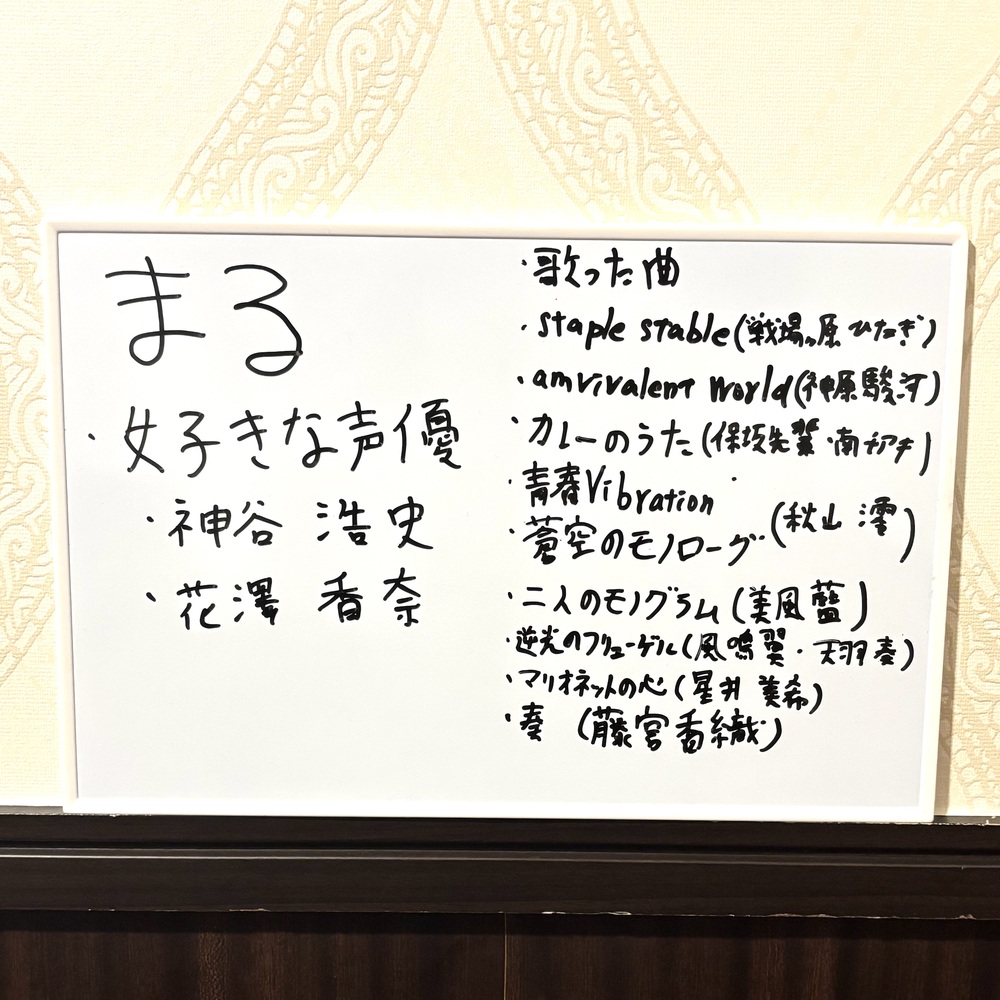 まる
・好きな声優
・神谷 浩史
・花澤 香奈
・歌った曲
・staple stable(戦場ヶ原 ひたぎ)
・amvivalent world(神原駿河)
・カレーのうた(保坂先輩・南チアキ)
・青春Vibration
・蒼空のモノローグ(秋山 澪)
・二人のモノグラム(美風藍)
・逆光のフリューゲル(風鳴翼・天羽奏)
・マリオネットの心(星井 美希)
・奏 (藤宮香織)